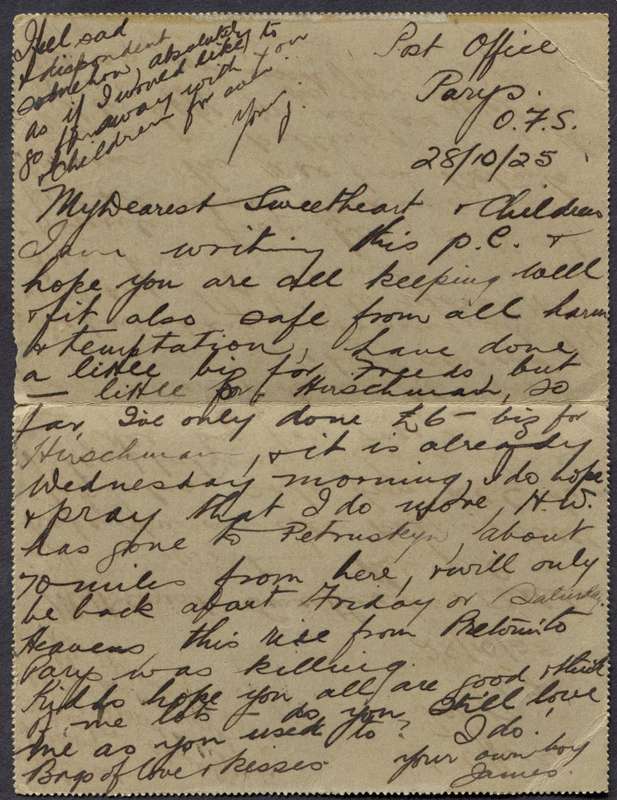 I feel sad
& dispondent
somehow, absolutely
as if I would like to
go far away with you
& Children for ever.
Post Office
Parys.
O.F.S.
28/10/25
My Dearest Sweetheart & Children
I am writing this p.C. &
hope you are all keeping well
& fit also safe from all harm
& temptation, have done
a little biz for Freeds, but
— little for Hirschman, so
far I've only done £6 - biz for
Hirschman, & it is already
Wednesday morning, & do hope
& pray that I do more. H.W.
has gone to about
70 miles from here, & will only
be back abart Friday or Saturday.
Heavens this rise from to
Parys was killing.
hope you all are good & think
of me lots - do you still love
me as you used to? I do!
Bags of love & kisses your own boy
James.